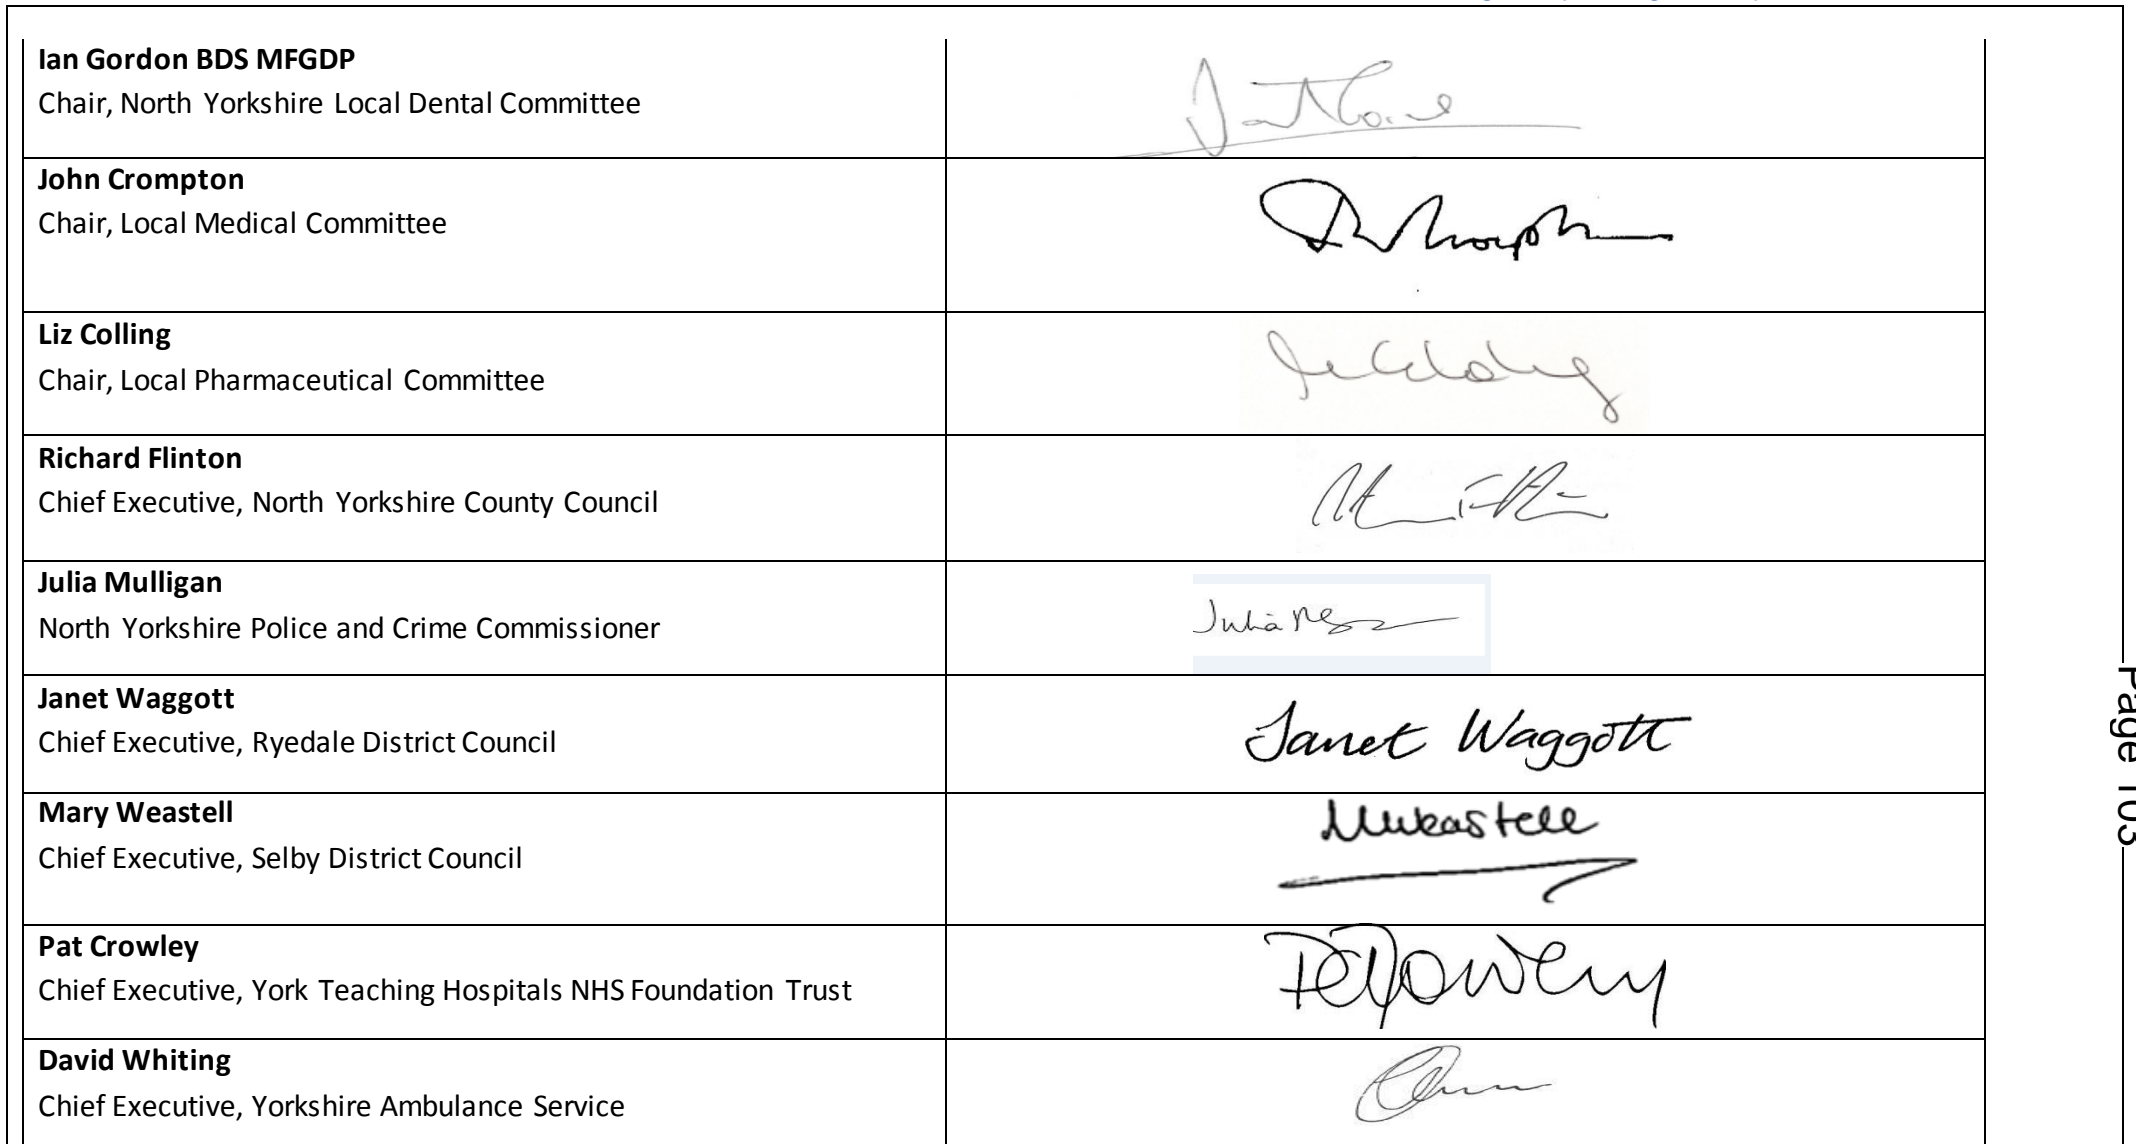 Ian Gordon BDS MFGDP
Chair, North Yorkshire Local Dental Committee
John Crompton
Chair, Local Medical Committee
Liz Colling
Chair, Local Pharmaceutical Committee
Richard Flinton
Chief Executive, North Yorkshire County Council
Julia Mulligan
North Yorkshire Police and Crime Commissioner
Julia
Janet Waggott
Chief Executive, Ryedale District Council
Janet Waggott
Mary Weastell
Chief Executive, Selby District Council
MWeastell
Pat Crowley
Chief Executive, York Teaching Hospitals NHS Foundation Trust
David Whiting
Chief Executive, Yorkshire Ambulance Service
Page 103